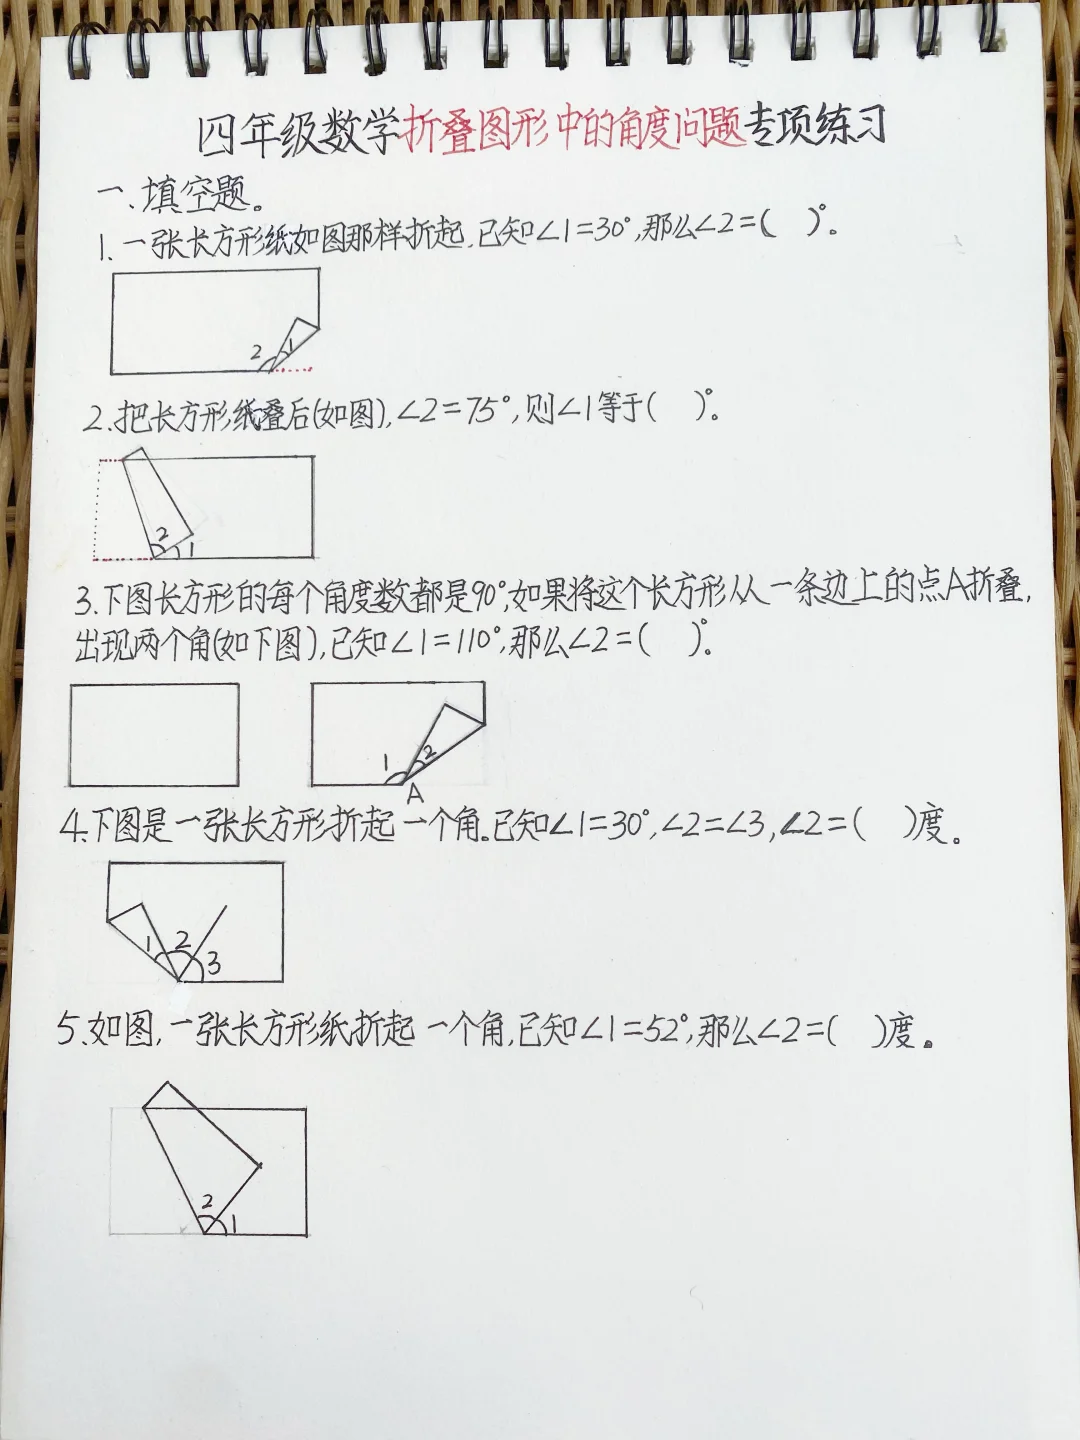 四年级数学折叠图形中的角度问题专项练习
一、填空题。
1. 一张长方形纸如图那样折起,已知∠1=30°,那么∠2=( )°。
2 1
2.把长方形纸叠后(如图),∠2=75°,则∠1等于( )°。
2 1
3.下图长方形的每个角度数都是90°,如果将这个长方形从一条边上的点A折叠,
出现两个角(如下图),已知∠1=110°,那么∠2=( )°。
1 2
A
4.下图是一张长方形折起一个角。已知∠1=30°,∠2=∠3,∠2=( )度。
1 2 3
5.如图,一张长方形纸折起一个角,已知∠1=52°,那么∠2=( )度。
2 1